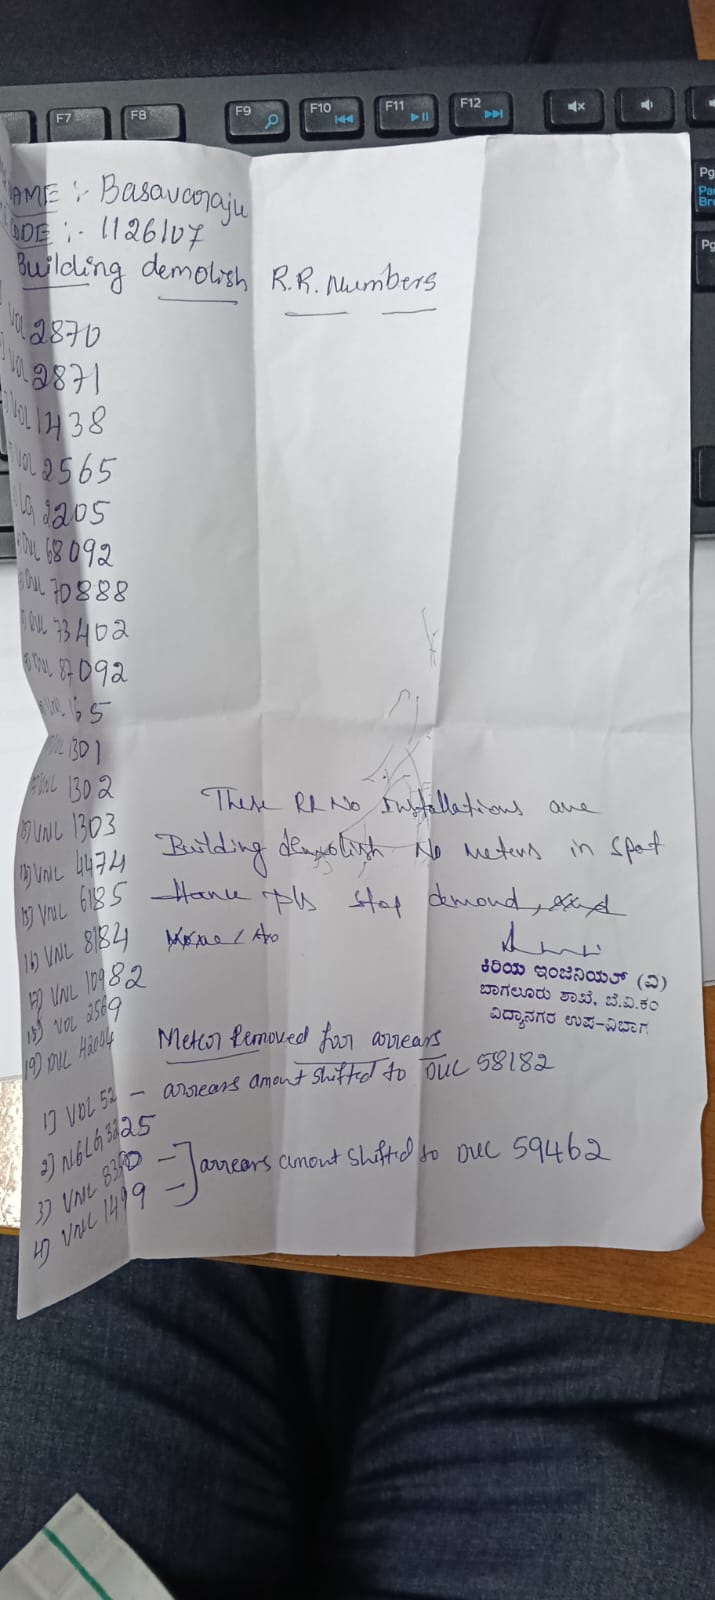 F7 F8 F9 F10 F11 F12
NAME :- Basavaraju
CODE :- 1126107
Building demolish R.R. Numbers
VOL 2870
VOL 2871
VOL 1438
VOL 2565
LG 2205
DUL 68092
DUL 70888
DUL 73402
DUL 87092
VNL 165
VNL 1301
VNL 1302
VNL 1303
VNL 4474
15) VNL 6185
16) VNL 8184
17) VNL 10982
18) VOL 2569
19) DUL
These RR No Installations are
Building demolish No meters in spot
Hance pls stop demand,
ಕಿರಿಯ ಇಂಜಿನಿಯರ್ (ವಿ)
ಬಾಗಲೂರು ಶಾಖೆ, ಬೆ.ವಿ.ಕಂ
ವಿದ್ಯಾನಗರ ಉಪ-ವಿಭಾಗ
Meter Removed for arrears
1) VOL 52 - arrears amont shifted to DUL 58182
2) NGLG 3225
3) VNL
4) VNL 1499
arrears amont shifted to DUL 59462